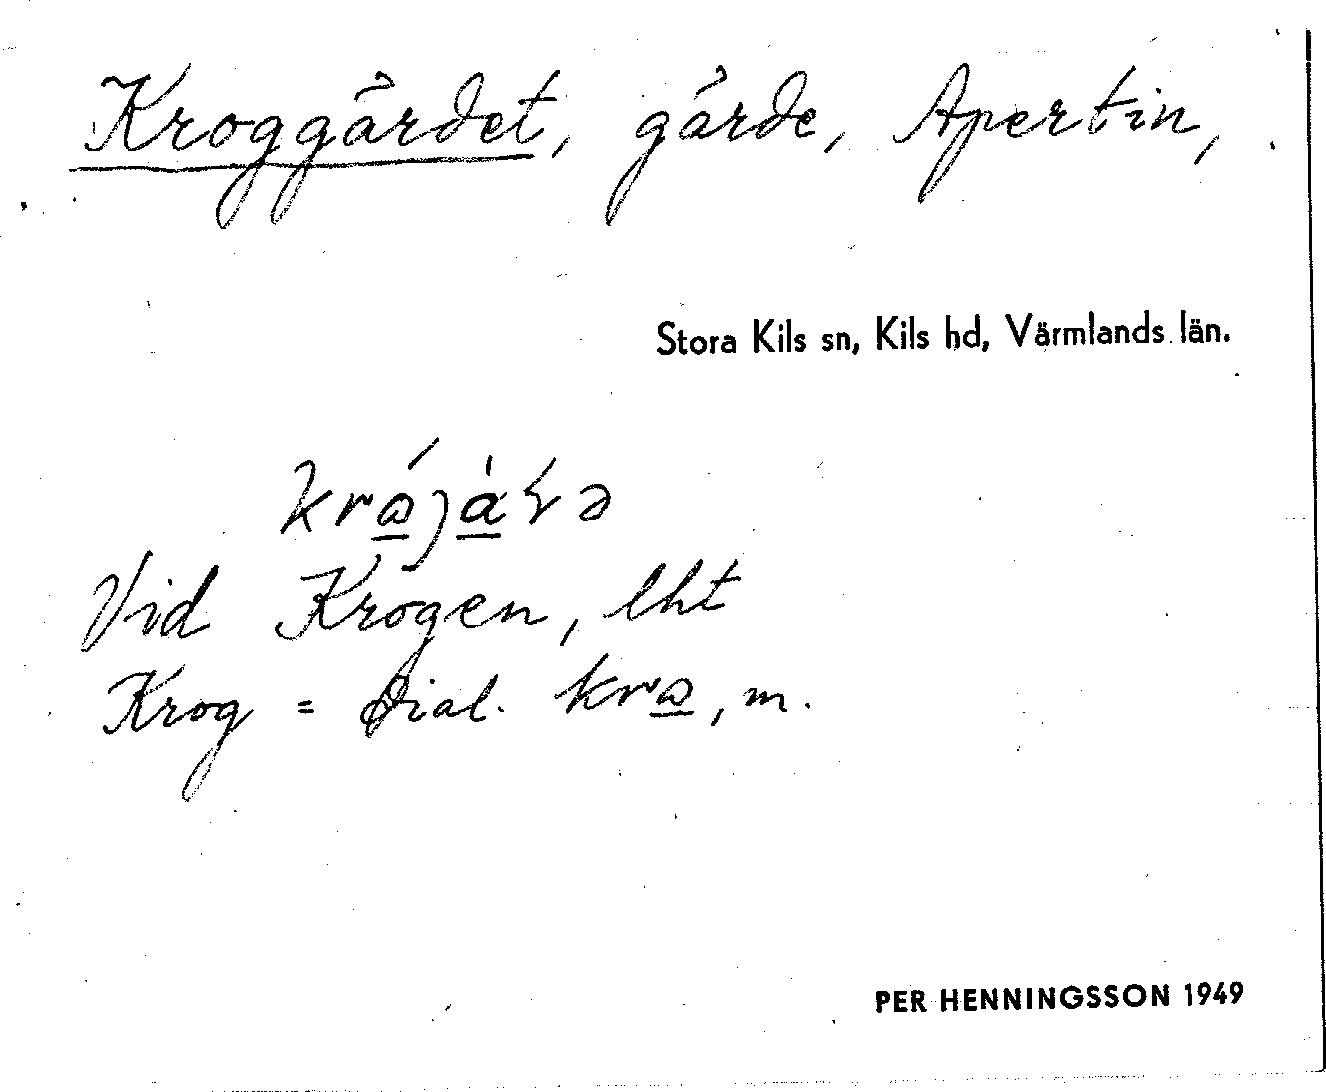 Kroggärdet, gärde, Apertin,
Stora Kils sn, Kils hd, Värmlands län.
Vid Krogen, lht
Krog = dial. kra, m.
PER HENNINGSSON 1949